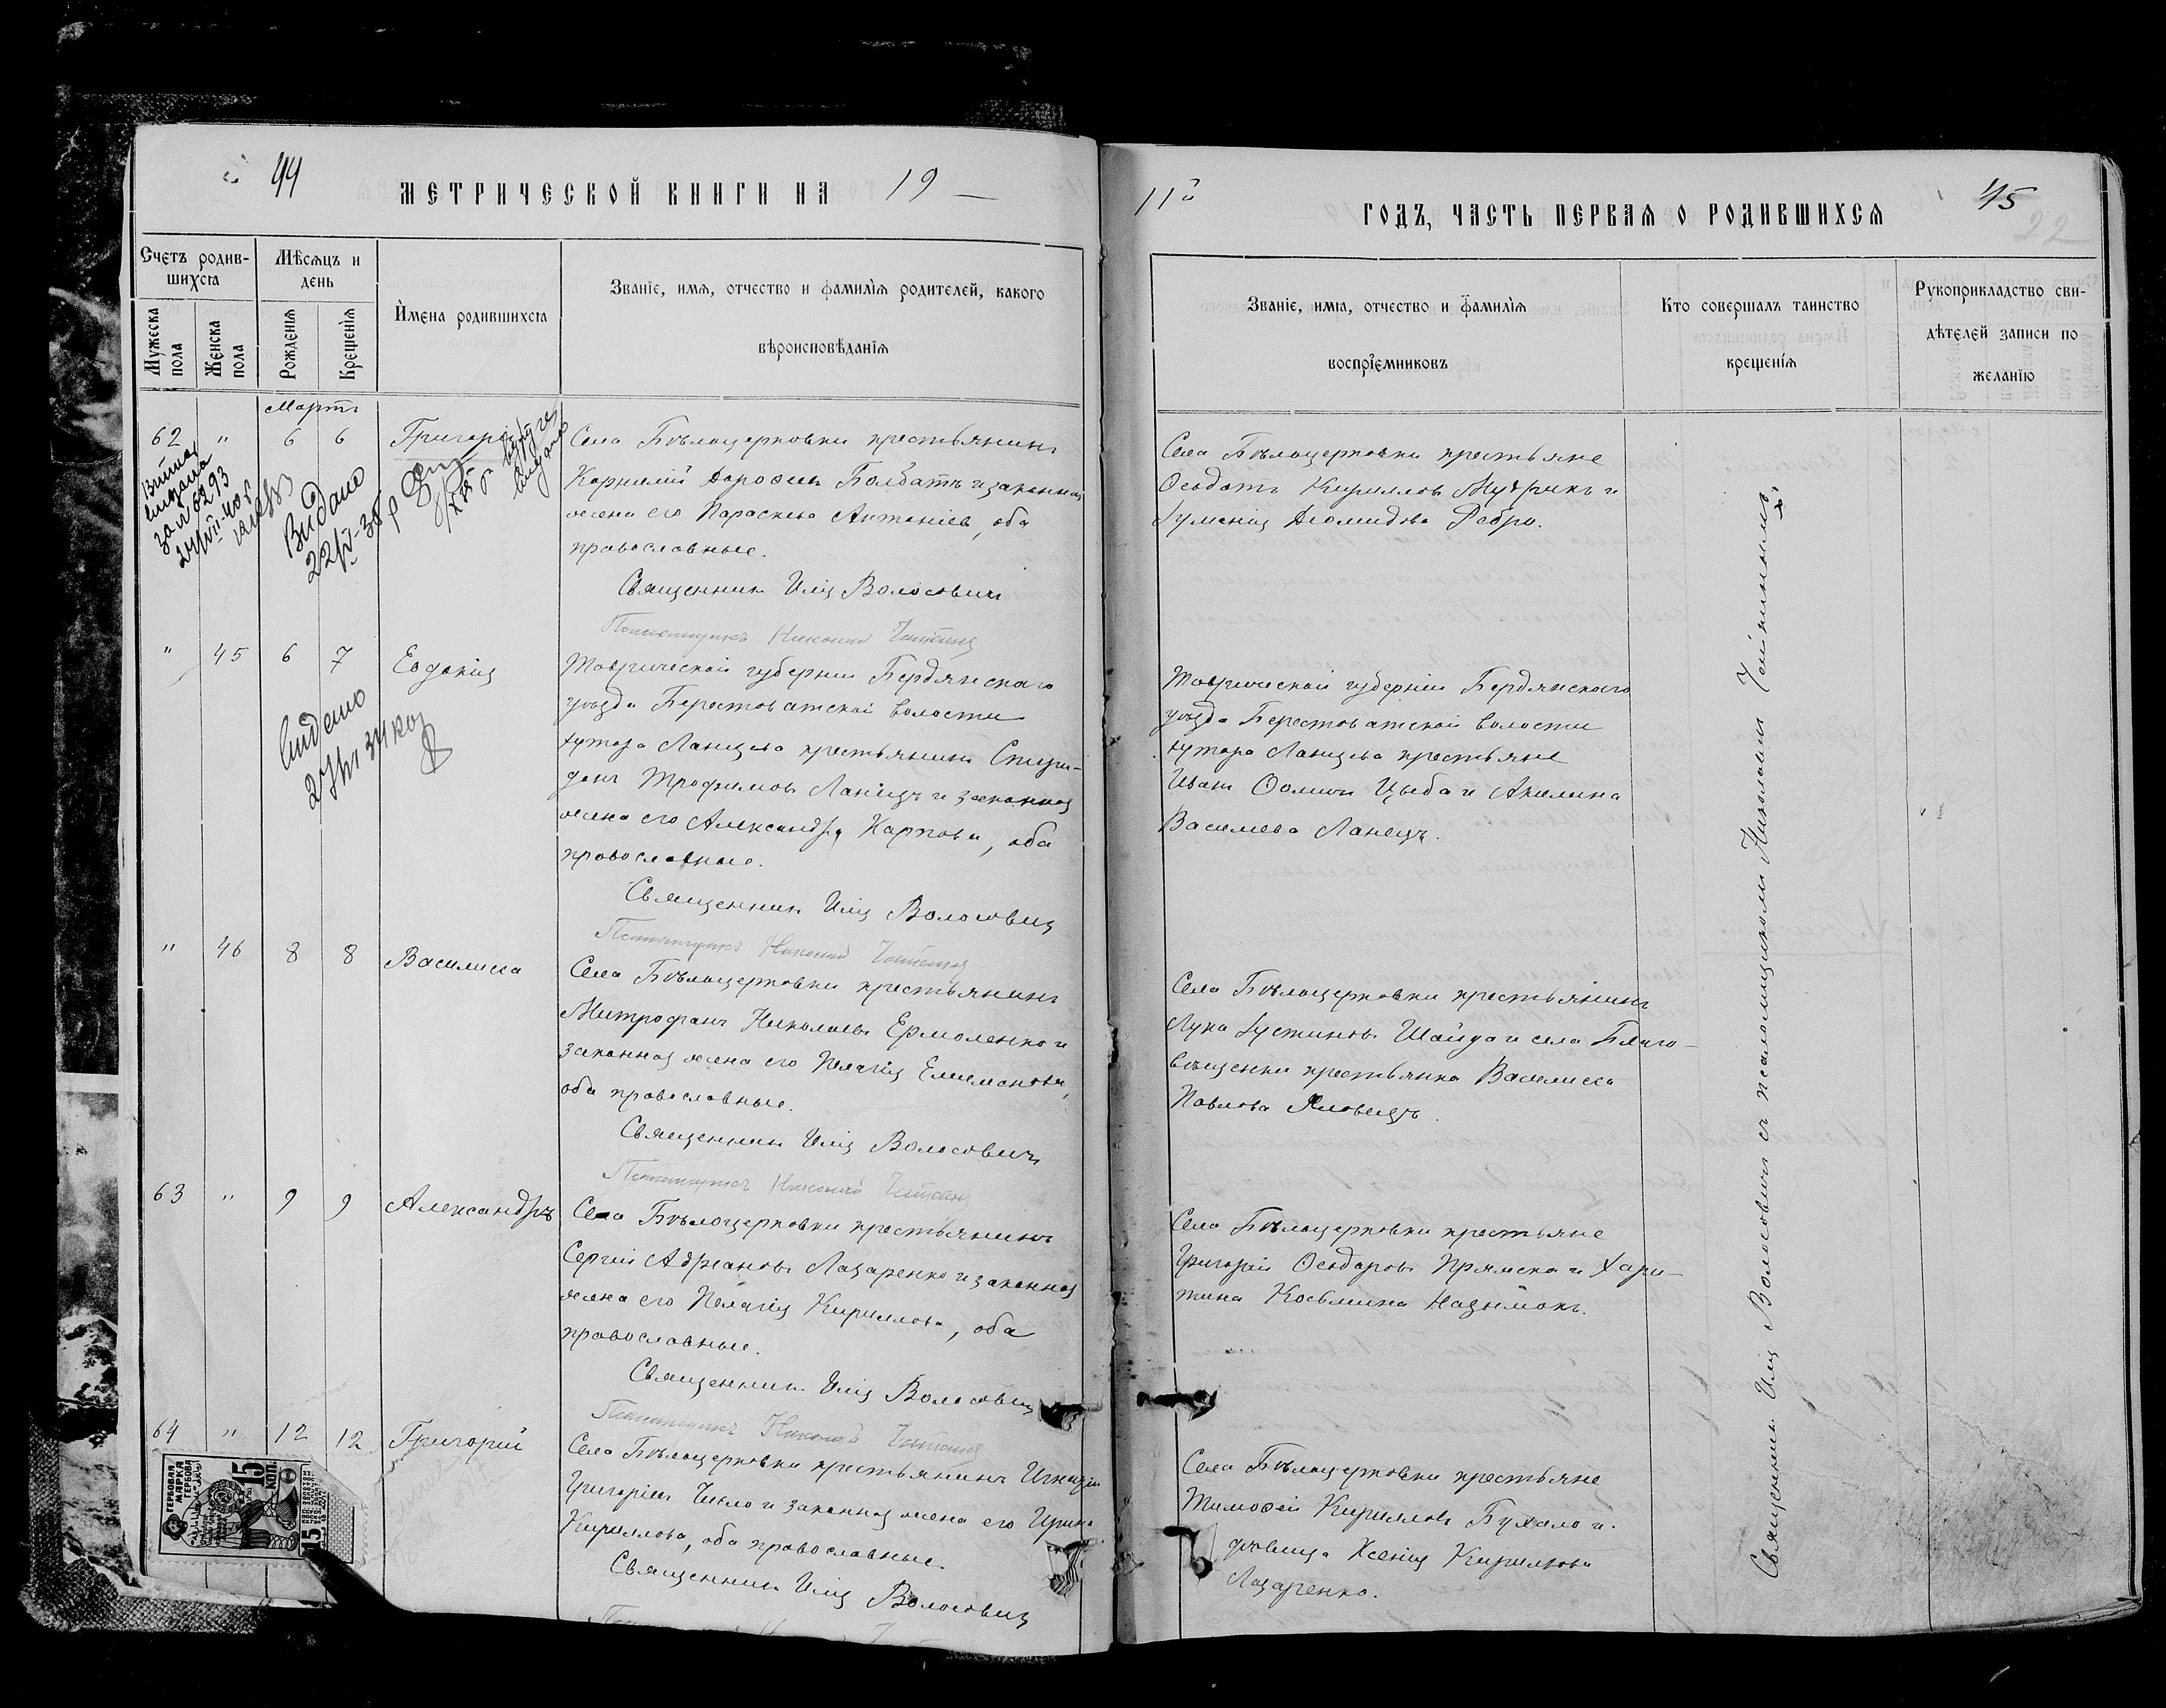 44
МЕТРИЧЕСКОЙ КНИГИ НА 19
Счетъ родив-
шихся
Мѣсяцъ и
день
Имена родившихся
Званіе, имя, отчество и фамилія родителей, какого
вѣроисповѣданія
Мужеска
пола
Женска
пола
Рожденія
Крещенія
Мартъ
62 " 6 6 Григорій
Села Бѣлоцерковки крестьянинъ
Корнилій Дорофеевъ Болбатъ и законная
жена его Параскева Антоніева, оба
православные.
Священникъ Илія Волосовичъ
Псаломщикъ Николай
Витяг
видано
за № 5293
Видано
22/IV-38 р
видано
" 45 6 7 Евдокія
Таврической губерніи Бердянскаго
уѣзда Берестоватской волости
хутора Ланцева крестьянинъ Спири-
донъ Трофимовъ Ланецъ и законная
жена его Александра Карпова, оба
православные.
Священникъ Илія Волосовичъ
Псаломщикъ Николай
" 46 8 8 Василисса
Села Бѣлоцерковки крестьянинъ
Митрофанъ Николаевъ Ермоленко и
законная жена его Пелагія
оба православные.
Священникъ Илія Волосовичъ
Псаломщикъ Николай
63 " 9 9 Александръ
Села Бѣлоцерковки крестьянинъ
Сергій Адріановъ Лазаренко и законная
жена его Пелагія Кириллова, оба
православные.
Священникъ Илія Волосовичъ
Псаломщикъ Николай
64 " 12 12 Григорій
Села Бѣлоцерковки крестьянинъ Игнатій
Григоріевъ и законная жена его Ирина
Кириллова, оба православные.
Священникъ Илія Волосовичъ
ГЕРБОВАЯ
МАРКА
ГЕРБОВА
15
КОП.
15
11й
ГОДЪ, ЧАСТЬ ПЕРВАЯ О РОДИВШИХСЯ
45
22
Званіе, имя, отчество и фамилія
воспріемниковъ
Кто совершалъ таинство
крещенія
Рукоприкладство сви-
дѣтелей записи по
желанію
Села Бѣлоцерковки крестьяне
Ѳеодотъ Кирилловъ и
Іуменія Діомидова Ребро.
Таврической губерніи Бердянскаго
уѣзда Берестоватской волости
хутора Ланцева крестьяне
Иванъ Ѳоминъ Цыба и Акилина
Василева Ланецъ.
Села Бѣлоцерковки крестьянинъ
Лука Іустиновъ Шайда и села Благо-
вѣщенки крестьянка Василисса
Павлова Яловецъ.
Села Бѣлоцерковки крестьяне
Григорій Ѳеодоровъ и Хари-
тина Косьмина
Села Бѣлоцерковки крестьяне
Тимоѳей Кирилловъ Бухало и
дѣвица Ксенія Кириллова
Лазаренко.
Священникъ Илія Волосовичъ съ псаломщикомъ Николаемъ